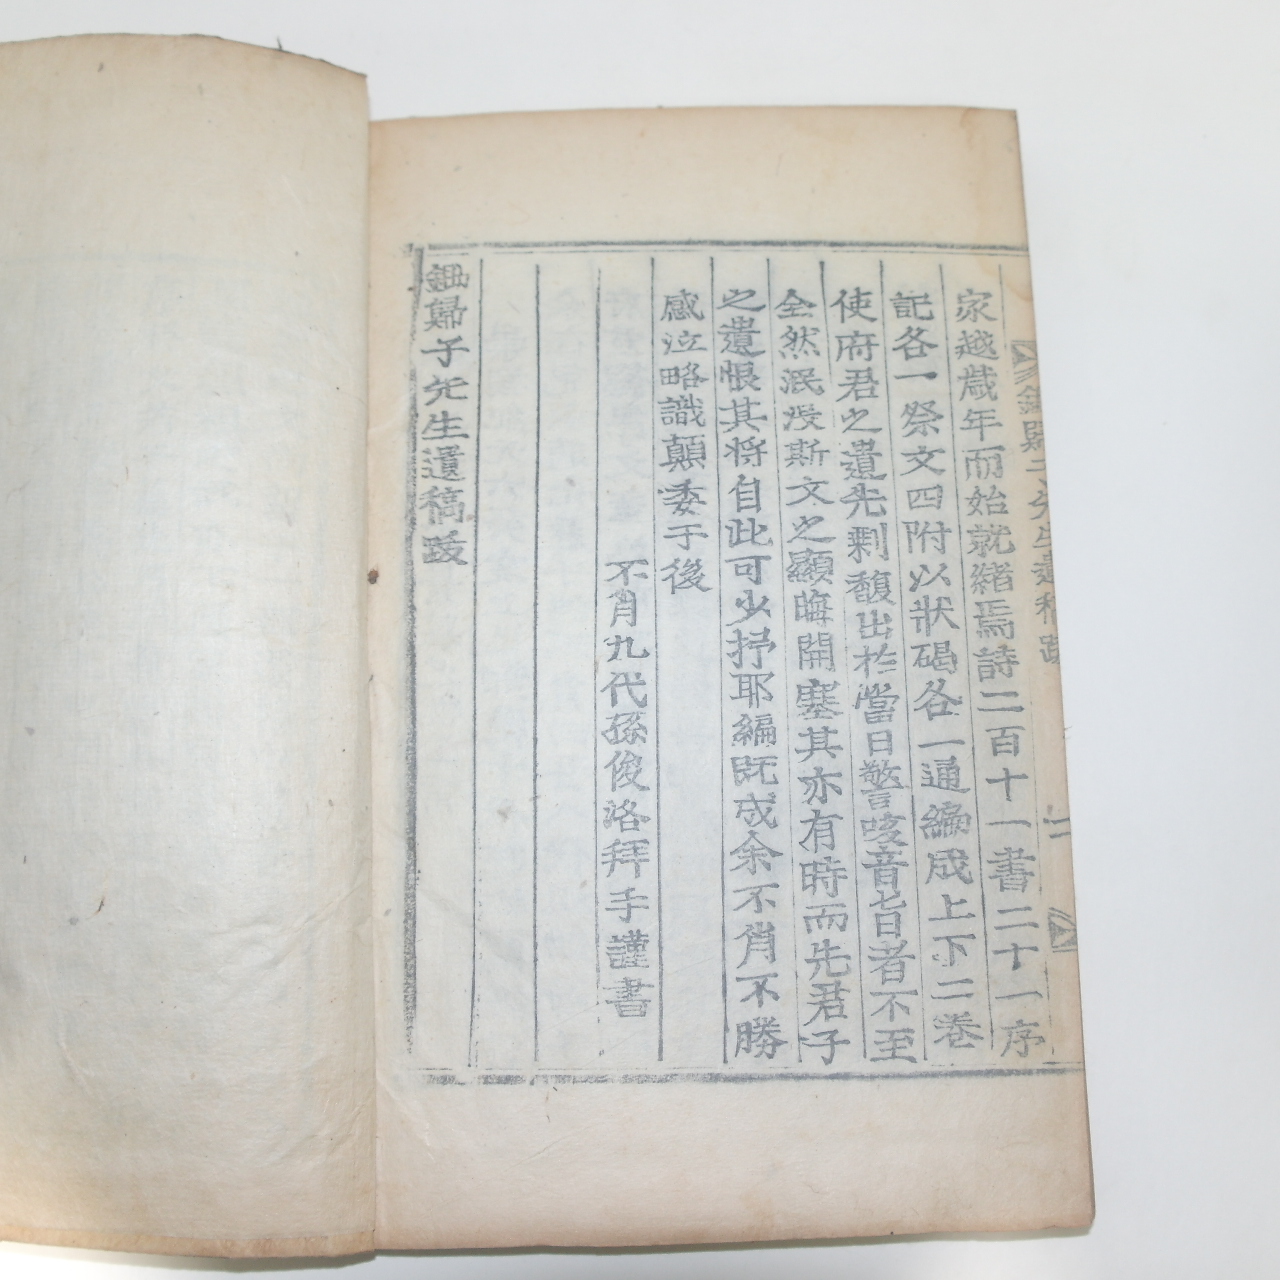 家越歲年而始就緖焉詩二百十一書二十一序
記各一祭文四附以狀碣各一通編成上下二卷
使府君之遺先剩馥出於當日警咳音旨者不至
全然泯沒斯文之顯晦開塞其亦有時而先君子
之遺恨其將自此可少抒耶編旣成余不肖不勝
感泣略識顚委于後
不肖九代孫俊洛拜手謹書
鋤歸子先生遺稿跋